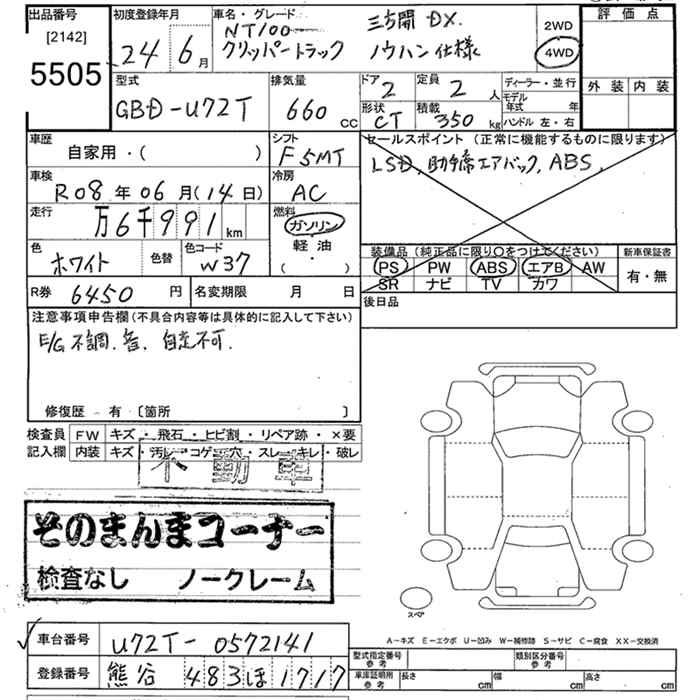 出品番号 初度登録年月 車名・グレード 評価点
[2142] NT100 三方開 DX. 2WD
5505 24 6月 クリッパートラック ノウハン仕様 4WD
型式 排気量 ドア 定員 ディーラー・並行 外装 内装
GBD-U72T 660 CC 2 2人 モデル年式 年
形状 積載 ハンドル 左・右
CT 350 kg
車歴 シフト セールスポイント (正常に機能するものに限ります)
自家用・( ) F5MT LSD, 助手席エアバック, ABS,
車検 冷房
R08年06月(14日) AC
走行 燃料
万6千991km ガソリン
色 色替 色コード 軽油 装備品 (純正品に限り○をつけてください) 新車保証書
ホワイト W37 (・) PS PW ABS エアB AW 有・無
SR ナビ TV カワ
R券 6450円 名変期限 月 日 後日品
注意事項申告欄(不具合内容等は具体的に記入して下さい)
E/G不調.音. 自走不可.
修復歴 有 〔箇所 〕
検査員 FW キズ・飛石・ヒビ割・リペア跡・×要
記入欄 内装 キズ・汚レ・コゲ・穴・スレ・キレ・破レ
不動車
そのまんまコーナー
検査なし ノークレーム
スペア
A-キズ E-エクボ U-凹み W-補修跡 S-サビ C-腐食 XX-交換済
車台番号 U72T-0572141 型式指定番号 参考 類別区分番号 参考
登録番号 熊谷 483ほ1717 車庫証明 参考 長さ cm 幅 cm 高さ cm